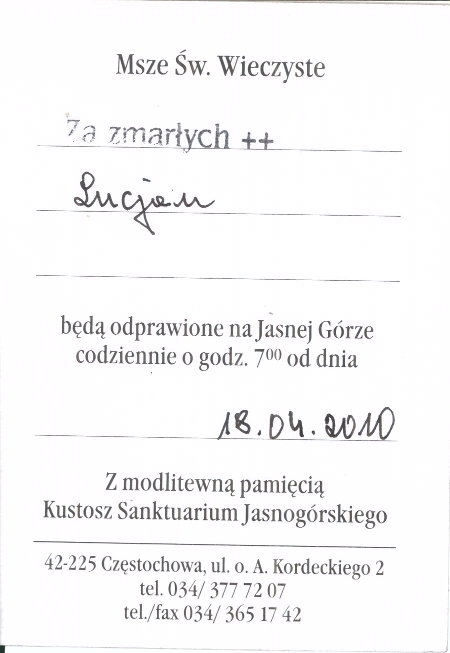 Msze Św. Wieczyste
Za zmarłych ++
Lucjan
będą odprawione na Jasnej Górze
codziennie o godz. 7⁰⁰ od dnia
18.04.2010
Z modlitewną pamięcią
Kustosz Sanktuarium Jasnogórskiego
42-225 Częstochowa, ul. o. A. Kordeckiego 2
tel. 034/ 377 72 07
tel./fax 034/ 365 17 42